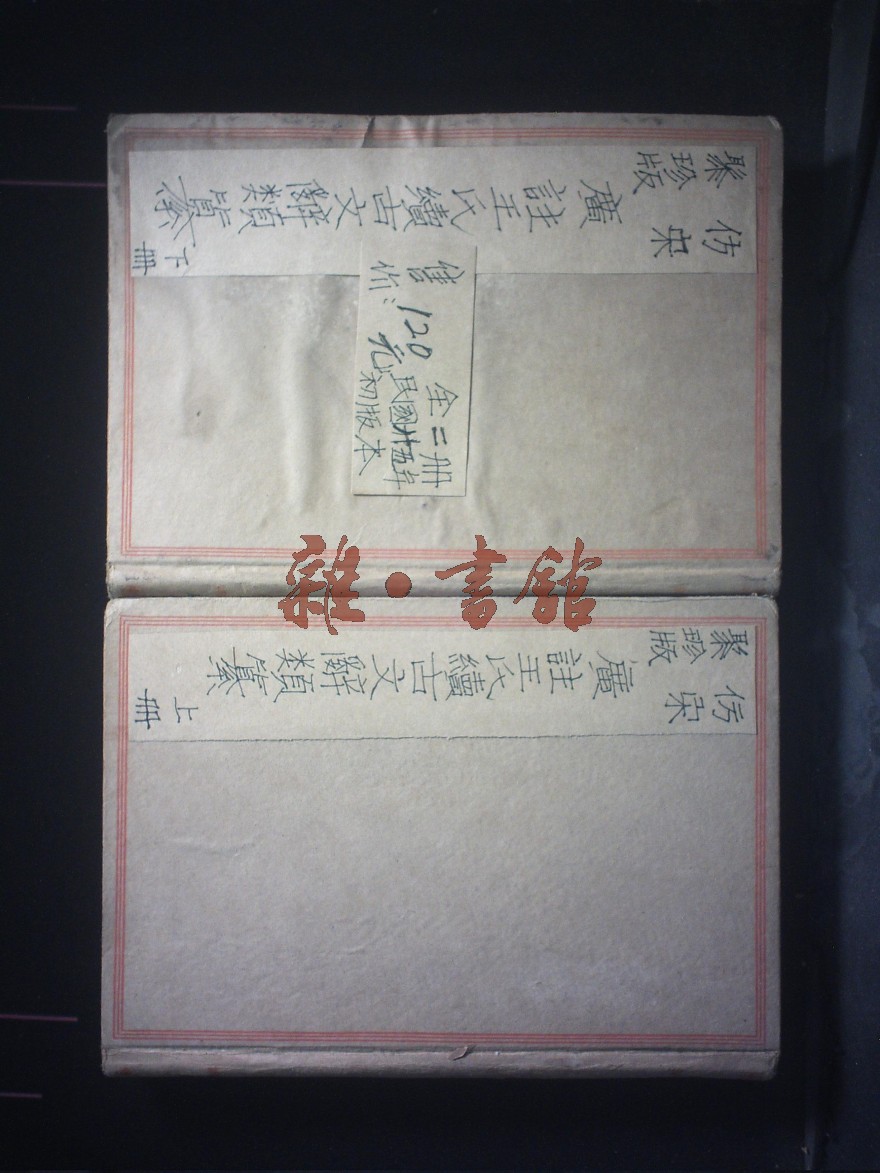 仿宋
聚珍版
廣註王氏續古文辭類纂
下冊
售价：120元
全二册
民國廿五年
初版本
雜·書館
仿宋
聚珍版
廣註王氏續古文辭類纂
上冊